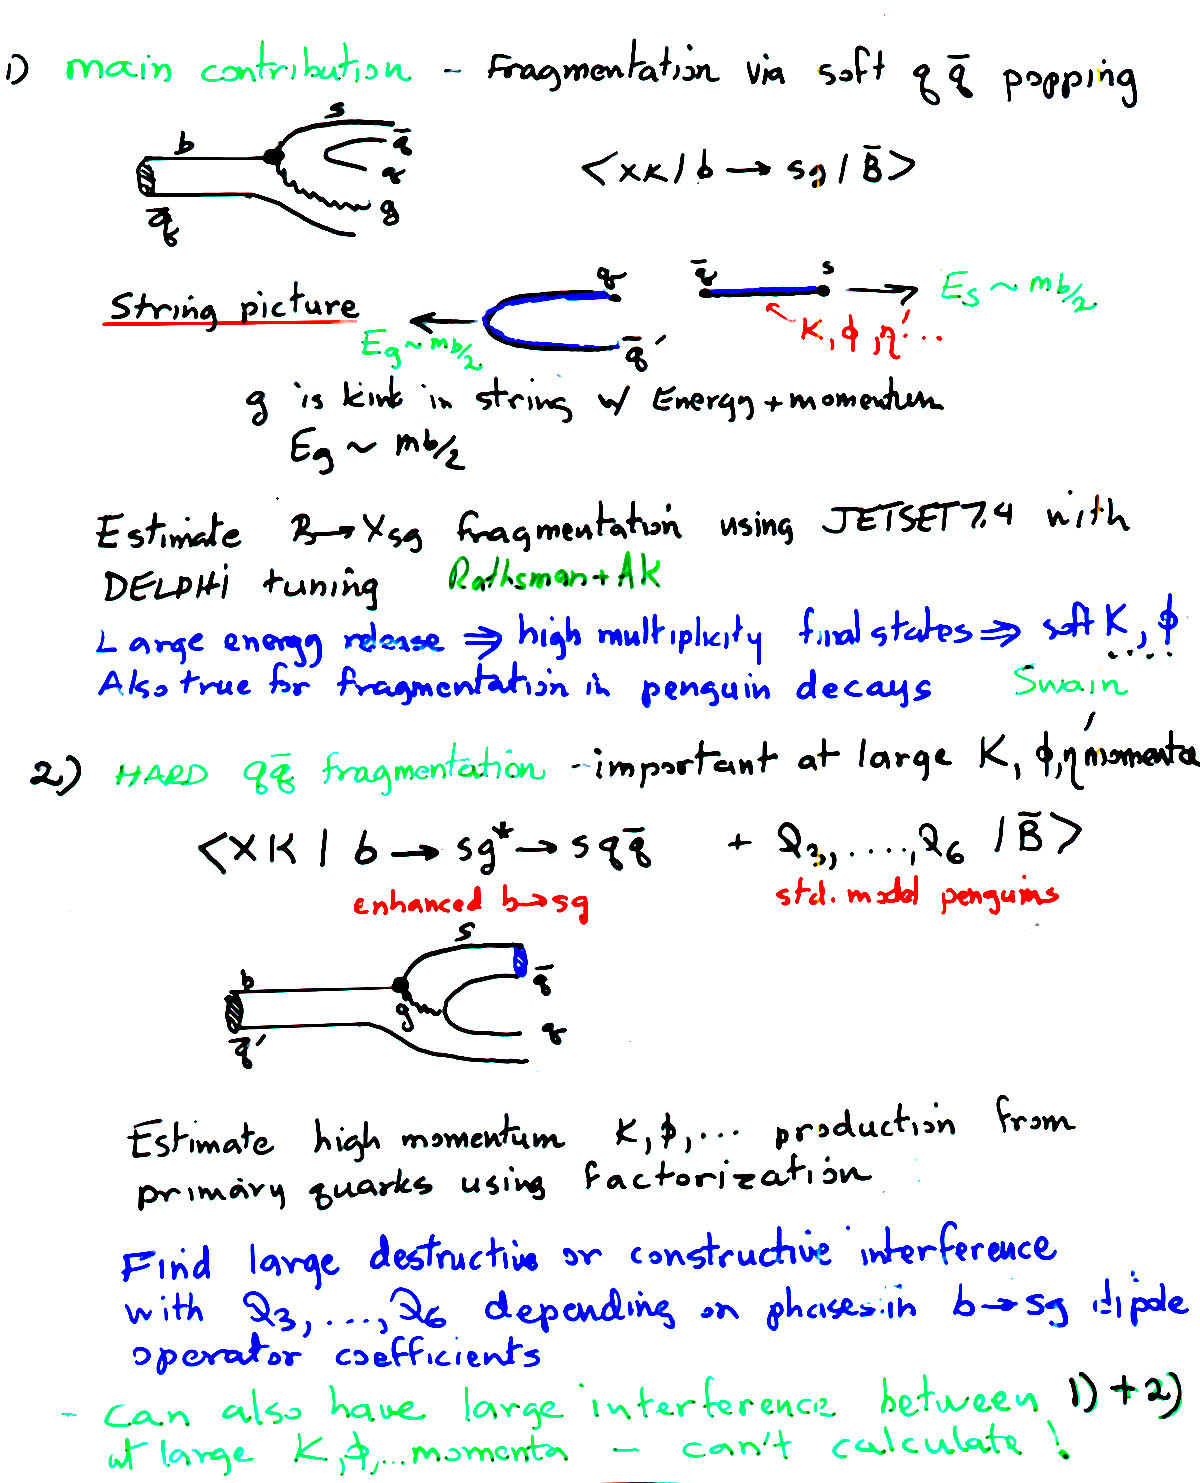 1) main contribution - Fragmentation via soft q q̄ popping
b s q̄ q g q̄
<XK | b → sg | B̄>
String picture
q q̄' q̄ s
Eg ~ mb/2
K, ϕ, η'...
Es ~ mb/2
g is kink in string w/ Energy + momentum
Eg ~ mb/2
Estimate B → Xsg fragmentation using JETSET 7.4 with
DELPHi tuning Rathsman + AK
Large energy release ⇒ high multiplicity final states ⇒ soft K, ϕ ....
Also true for fragmentation in penguin decays Swain
2) HARD q q̄ fragmentation - important at large K, ϕ, η' momenta
<XK | b → sg* → s q q̄ + Q3, ...., Q6 | B̄>
enhanced b→sg std. model penguins
b s g q̄ q q̄'
Estimate high momentum K, ϕ, ... production from
primary quarks using factorization
Find large destructive or constructive interference
with Q3, ..., Q6 depending on phases in b→sg dipole
operator coefficients
- can also have large interference between 1) + 2)
at large K, ϕ, ... momenta - can't calculate!